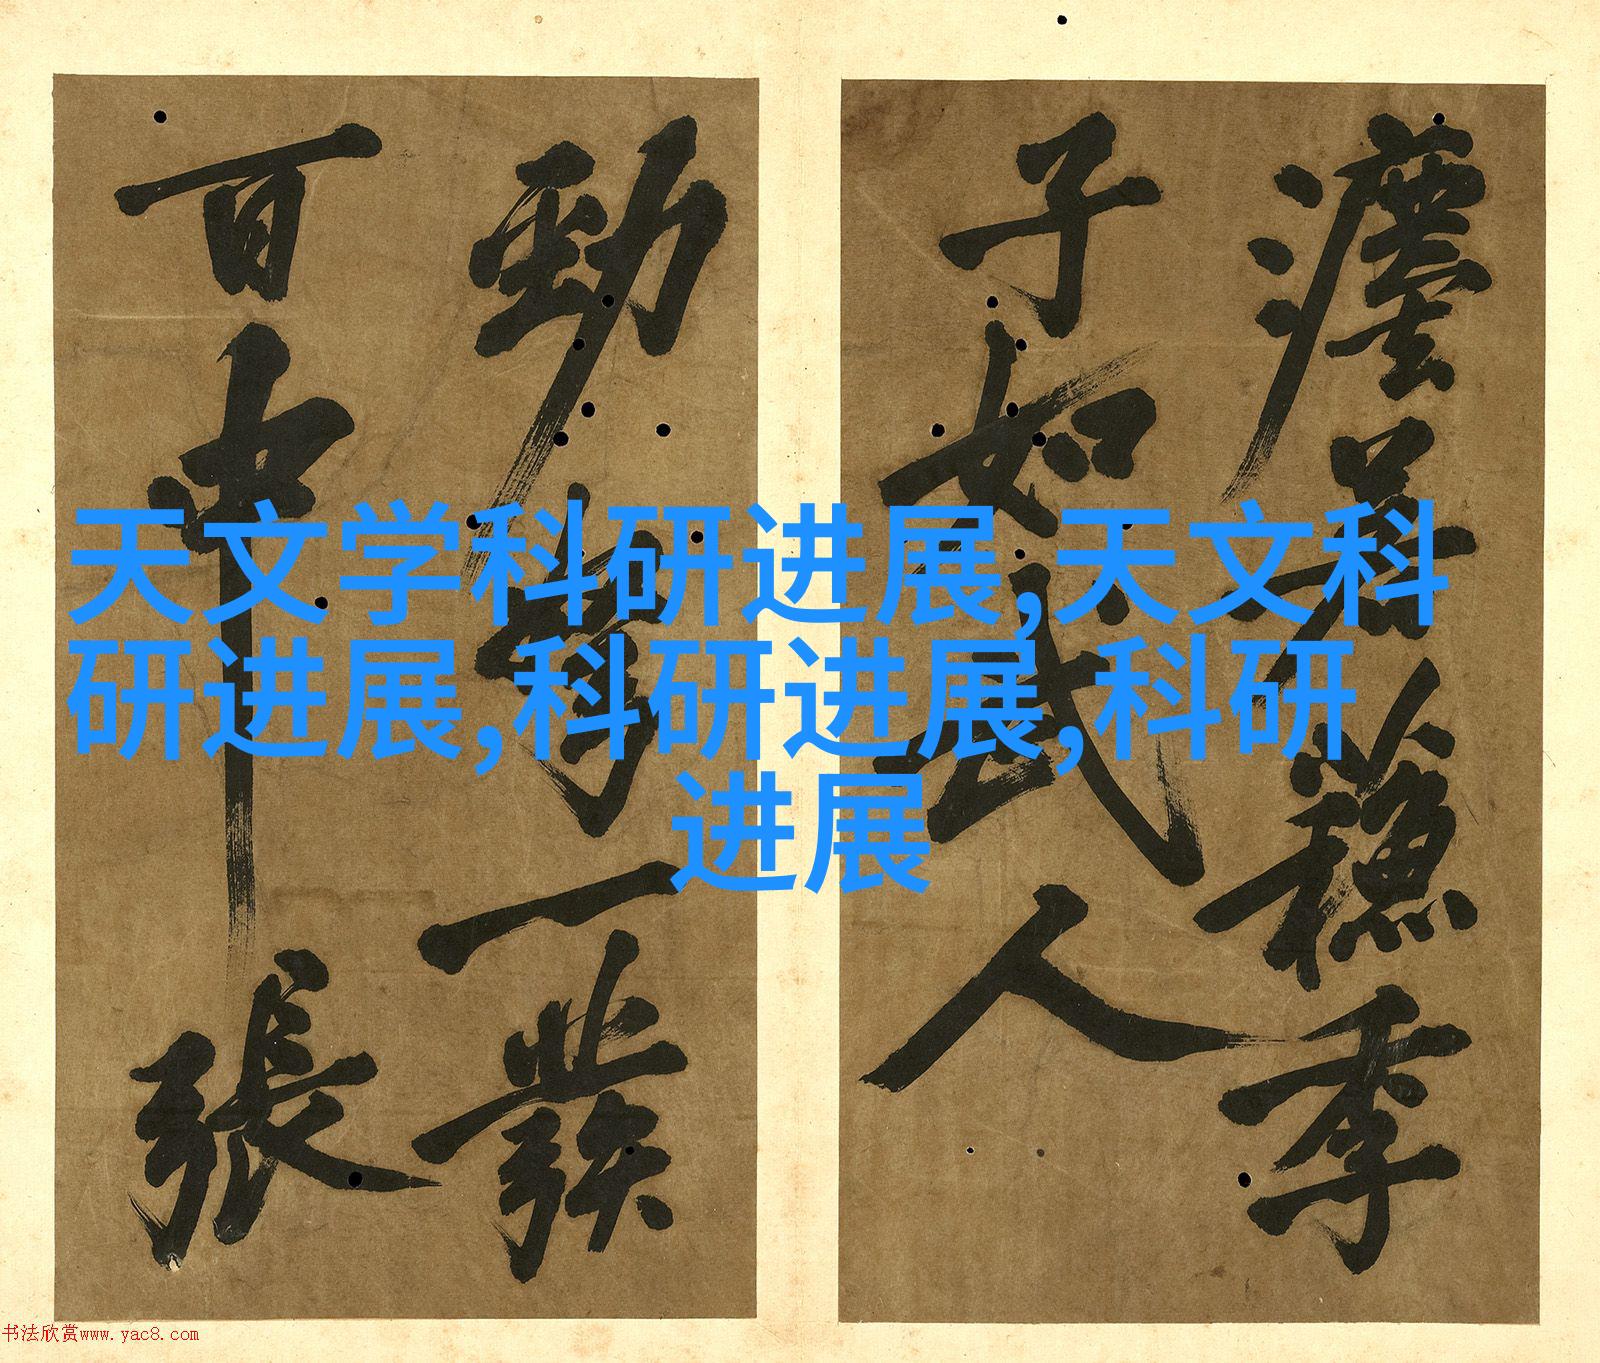 天文学科研进展,天文科
研进展,科研进展,科研
进展
季
子如武人
勁弩一發
百中張
书法欣赏www.yac8.com